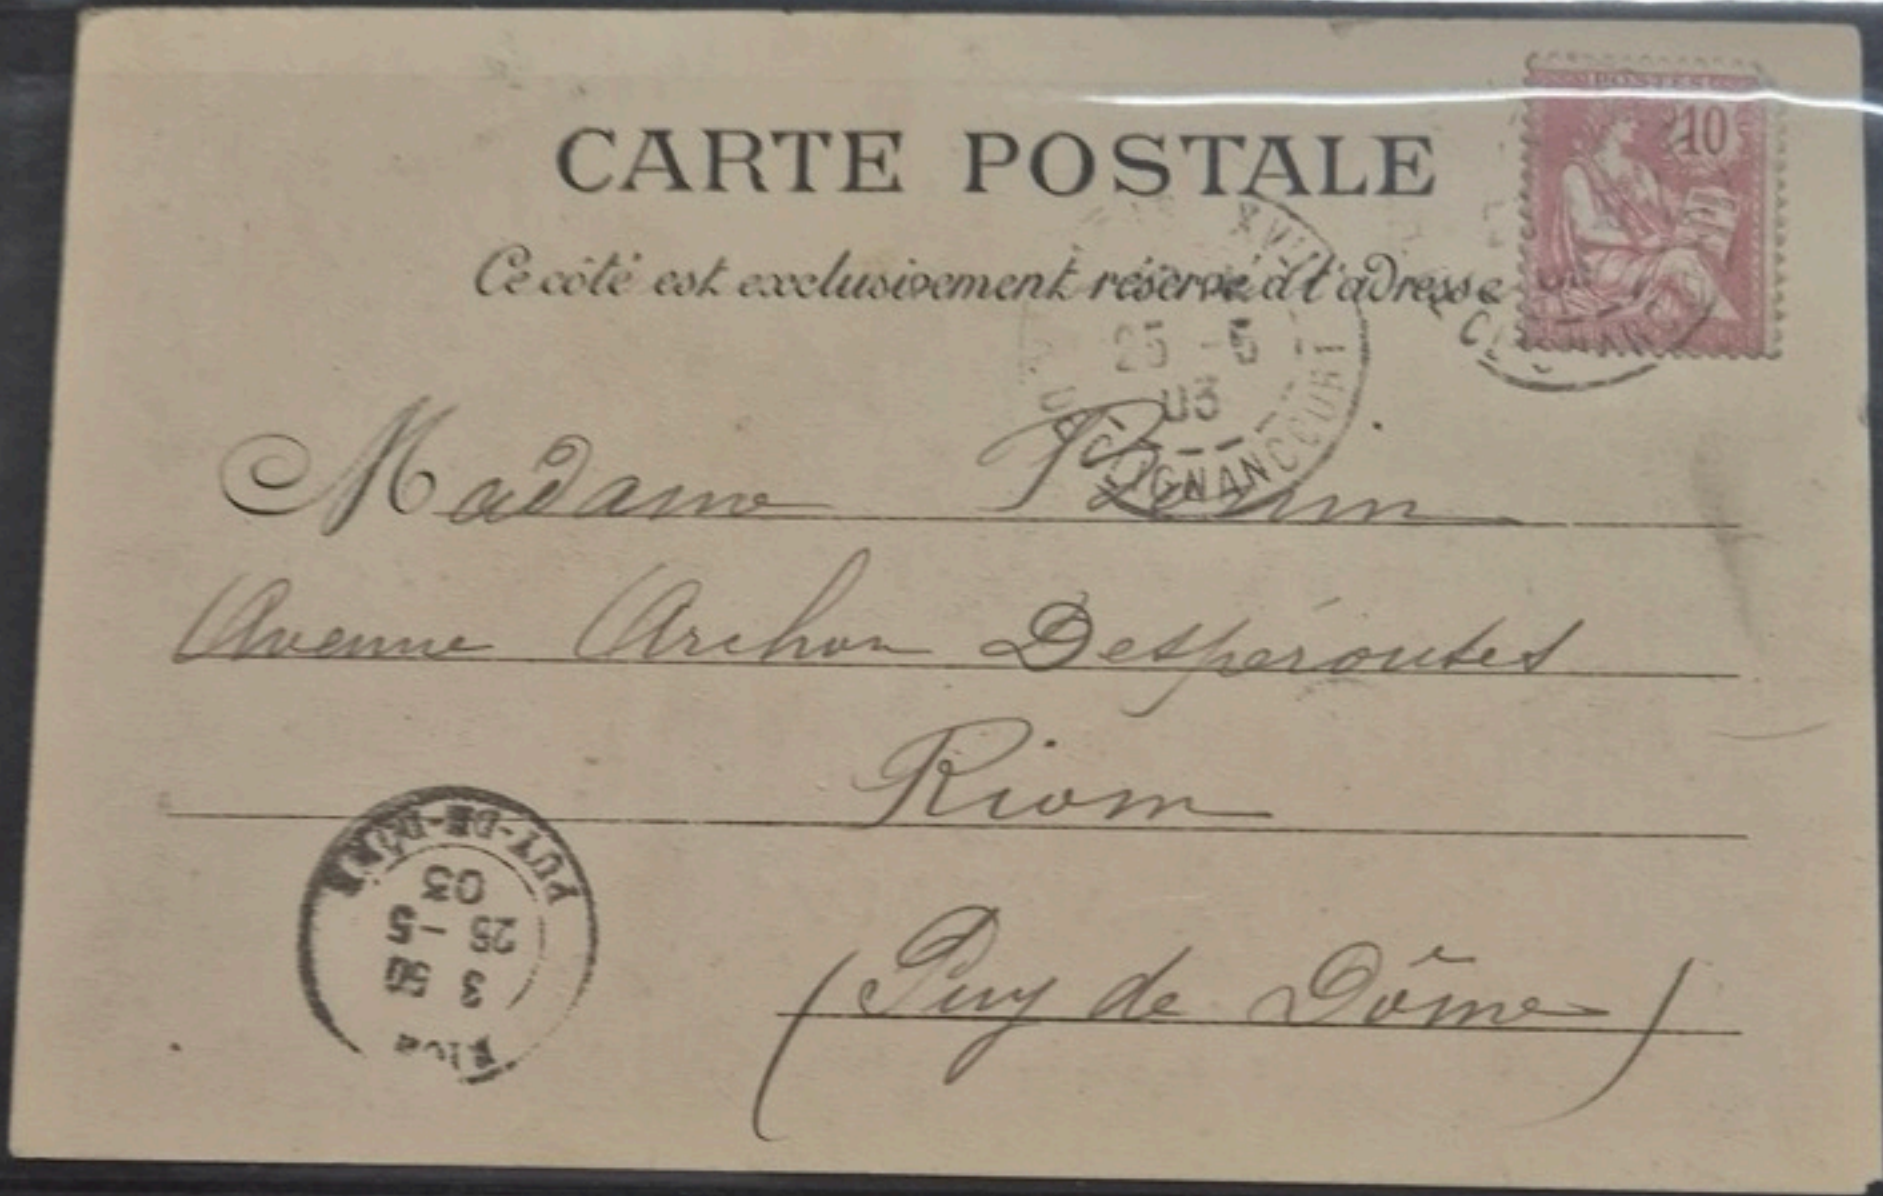 CARTE POSTALE
POSTES
10
Ce côté est exclusivement réservé à l'adresse
25 -5
03
CLIGNANCOURT
Madame
Avenue Archon Despérouses
Riom
(Puy de Dôme)
RIOM
3 50
25 -5
03
PUY-DE-DÔME